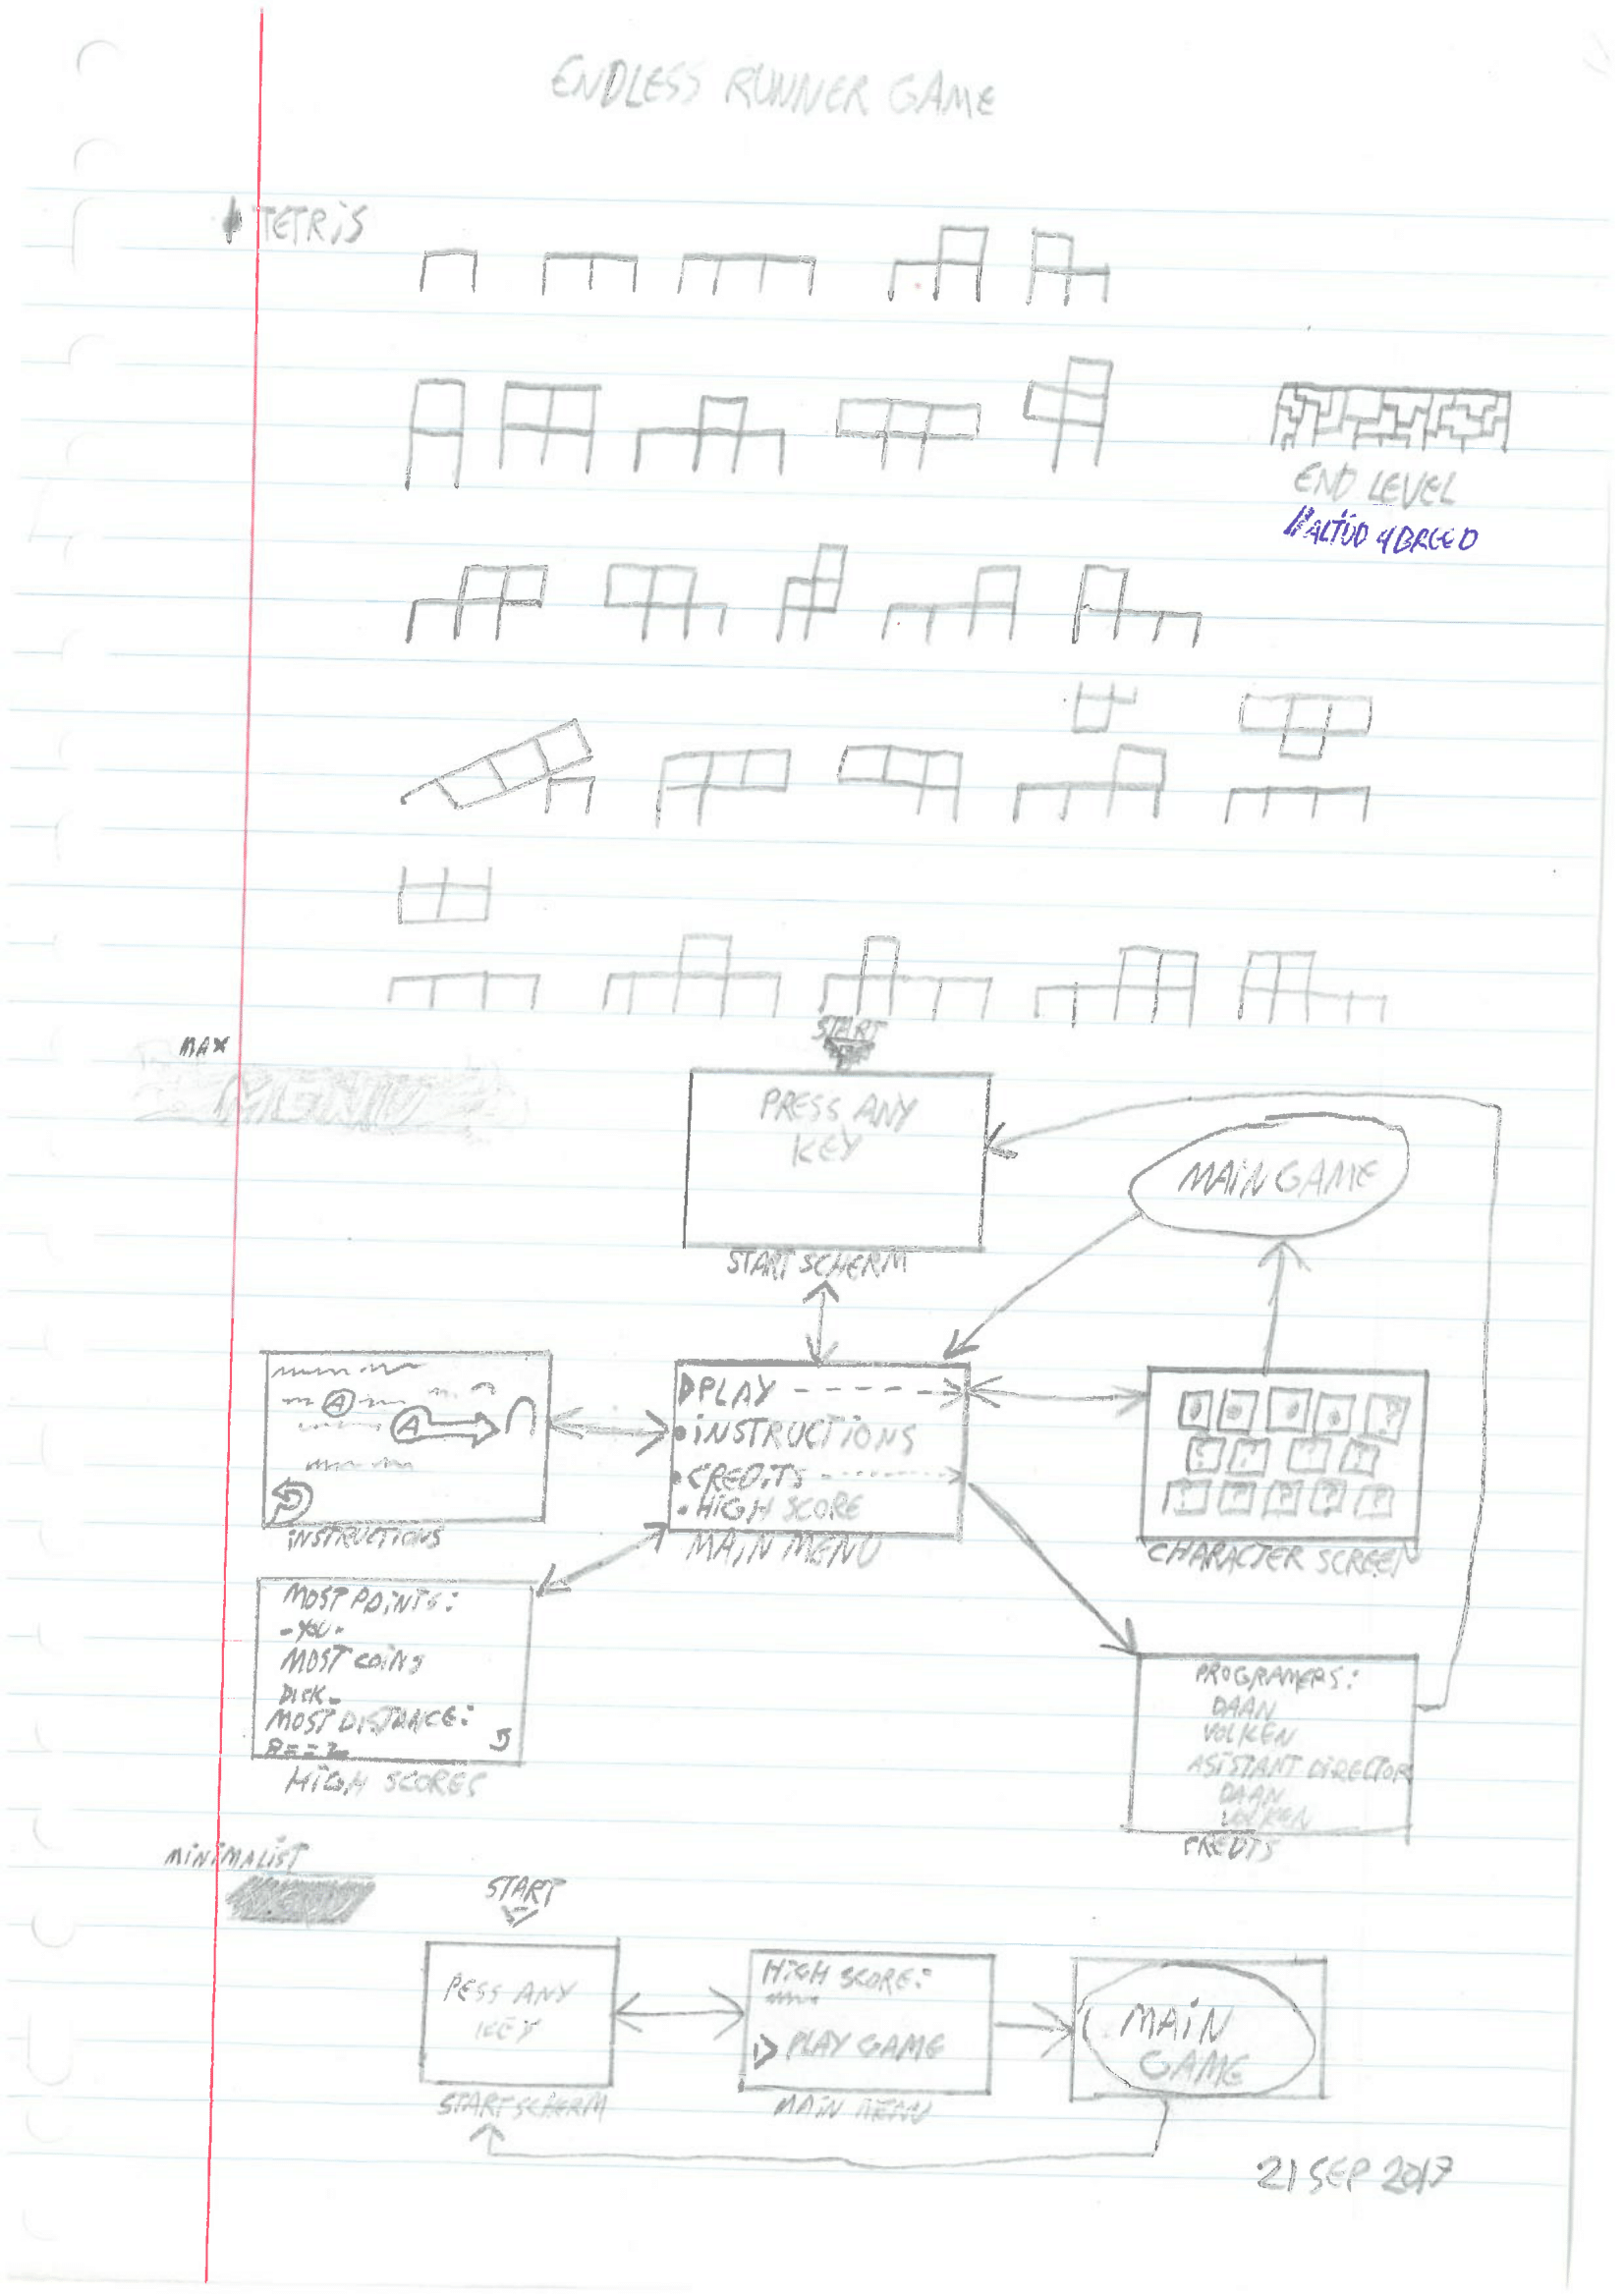 ENDLESS RUNNER GAME
TETRiS
END LEVEL
ALTIJD 4 BREED
MAX
MENU
START
PRESS ANY
KEY
START SCHERM
MAIN GAME
A
A
INSTRUCTIONS
PLAY
INSTRUCTIONS
CREDITS
HIGH SCORE
MAIN MENU
CHARACTER SCREEN
MOST POINTS:
- YOU -
MOST COINS
DICK -
MOST DISTANCE:
HIGH SCORES
PROGRAMERS:
DAAN
VOLKEN
ASISTANT DIRECTOR
DAAN
VOLKEN
CREDTS
MINIMALIST
START
PESS ANY
KEY
START SCHERM
HIGH SCORE:
PLAY GAME
MAIN MENU
MAIN
GAME
21 SEP 2017